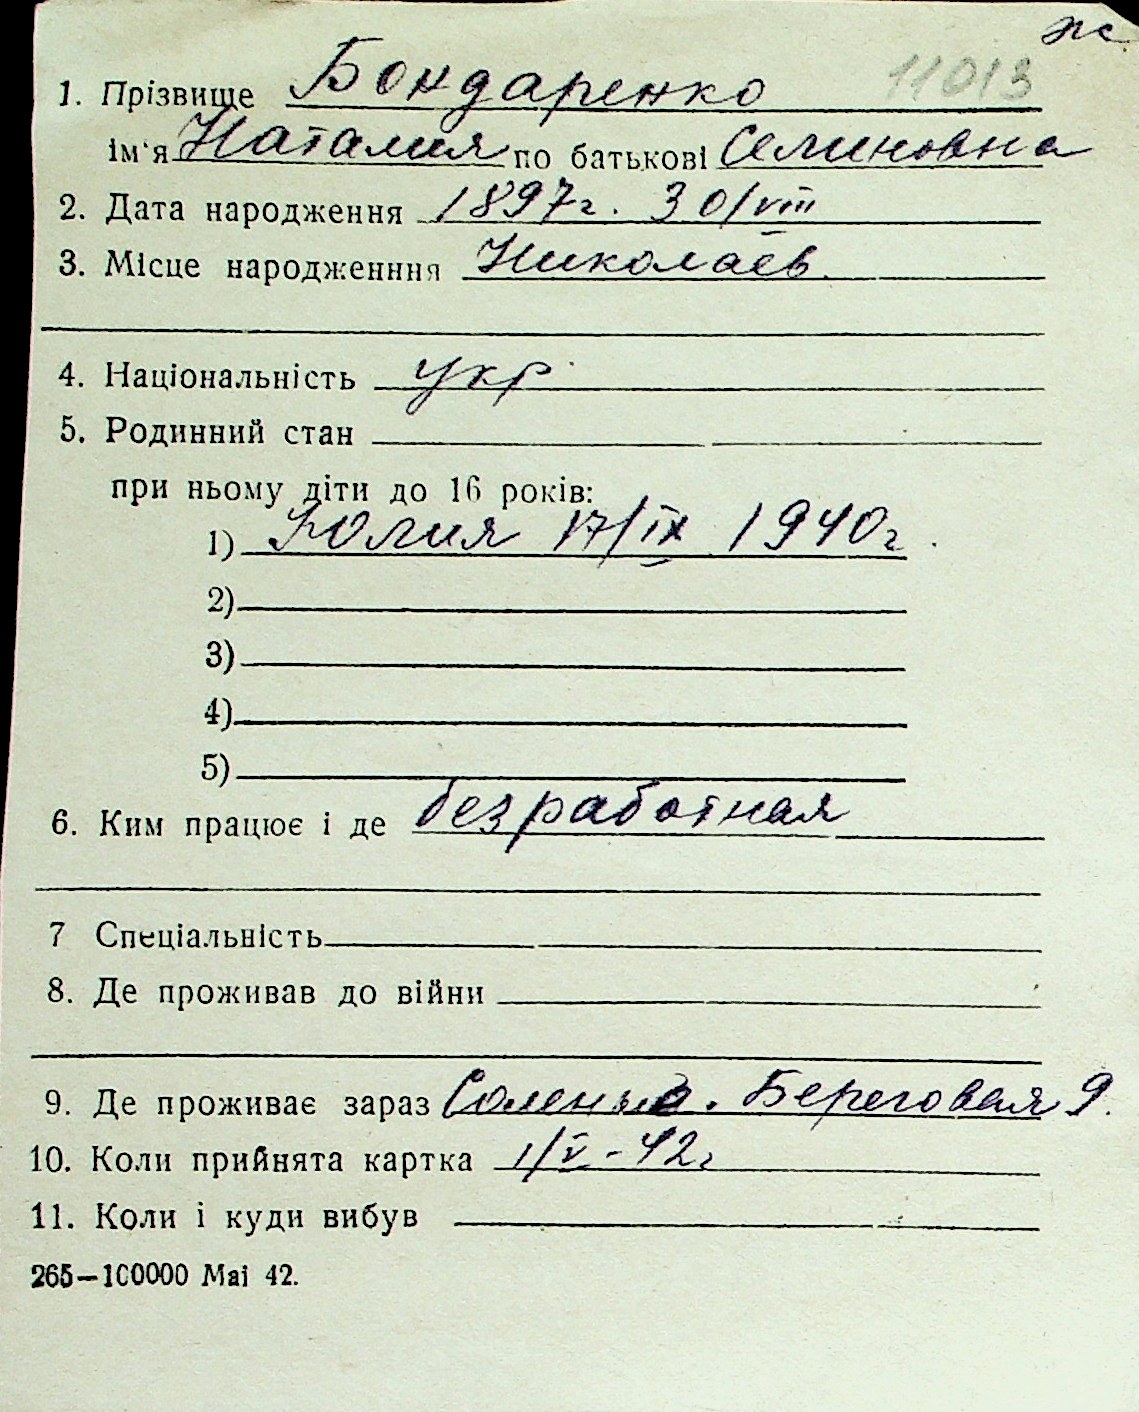 ж
1. Прізвище Бондаренко 11013
ім'я Наталия по батькові Семиновна
2. Дата народження 1897г. 30/VIII
3. Місце народженння Николаев
4. Національність укр
5. Родинний стан
при ньому діти до 16 років:
1) Юлия 17/IX 1940г.
2)
3)
4)
5)
6. Ким працює і де безработная
7 Спеціальність
8. Де проживав до війни
9. Де проживає зараз Береговая 9.
10. Коли прийнята картка 1/V-42г
11. Коли і куди вибув
265—100000 Mai 42.